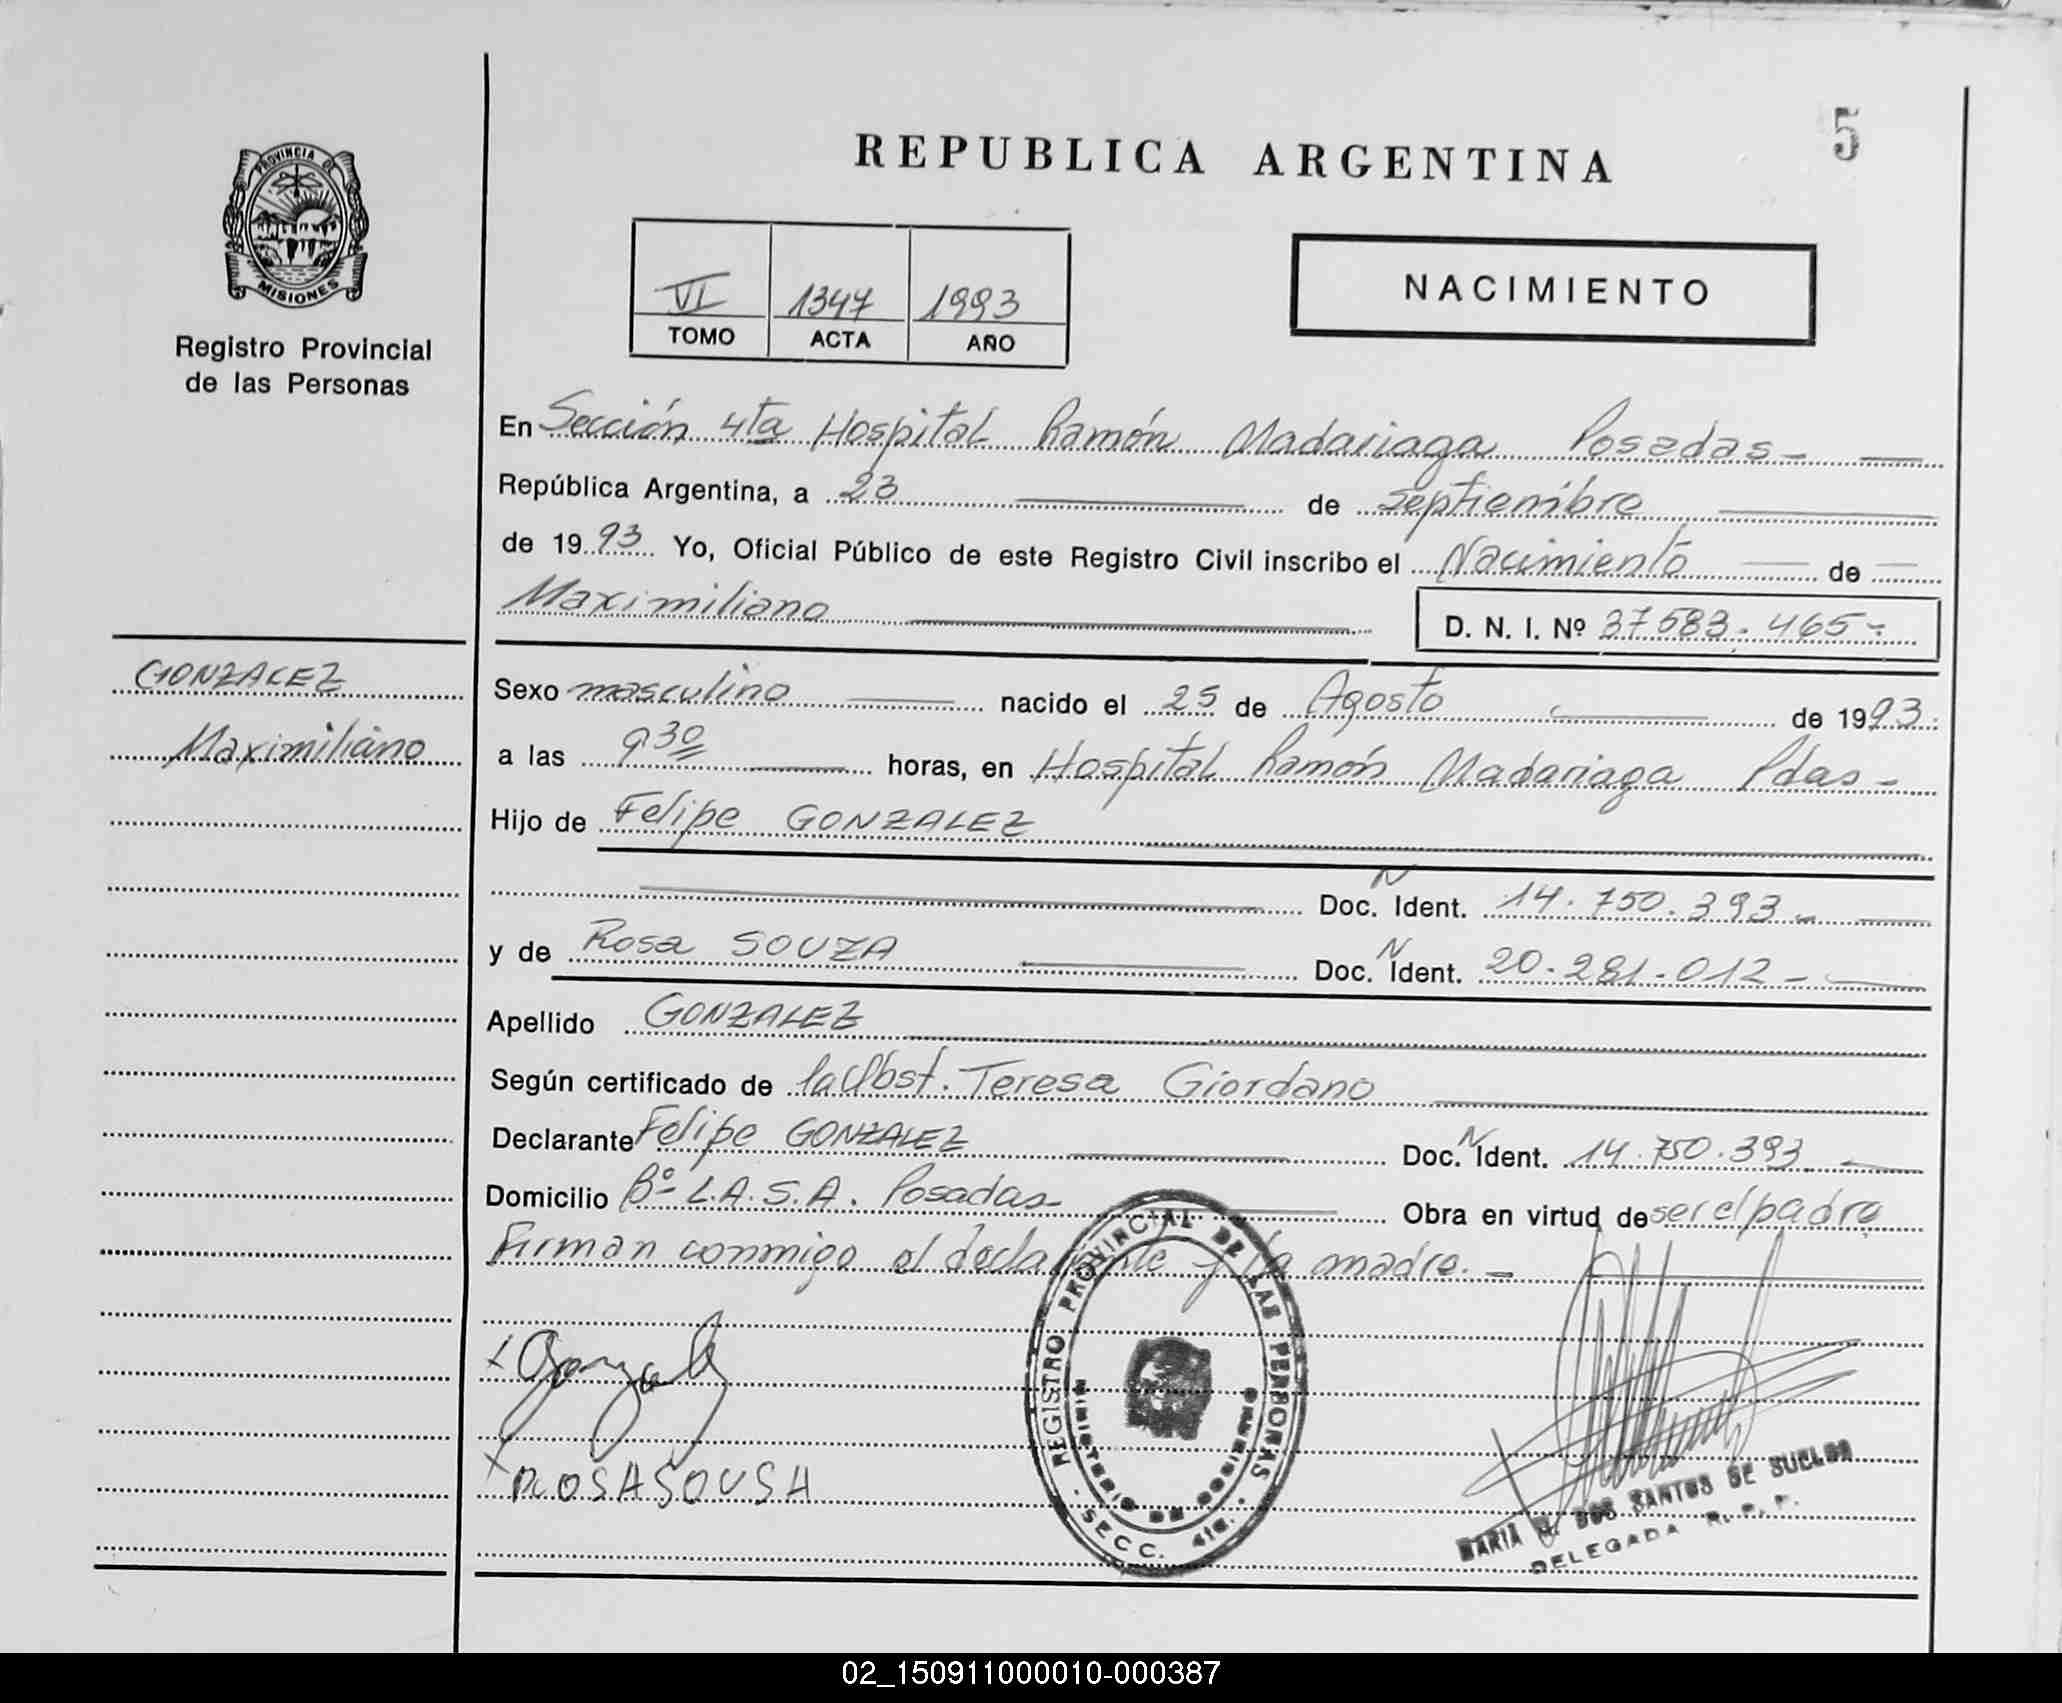 5
REPUBLICA ARGENTINA
PROVINCIA DE
MISIONES
Registro Provincial
de las Personas
VI 1347 1993
TOMO ACTA AÑO
NACIMIENTO
En Sección 4ta Hospital Ramón Madariaga Posadas-
República Argentina, a 23 de septiembre
de 1993 Yo, Oficial Público de este Registro Civil inscribo el Nacimiento de
Maximiliano D. N. I. Nº 37583.465-
GONZALEZ
Maximiliano
Sexo masculino nacido el 25 de Agosto de 1993.
a las 9 30 horas, en Hospital Ramón Madariaga Pdas-
Hijo de Felipe GONZALEZ
Doc. N Ident. 14.750.393-
y de Rosa SOUZA Doc. N Ident. 20.281.012-
Apellido GONZALEZ
Según certificado de la Obst. Teresa Giordano
Declarante Felipe GONZALEZ Doc. N Ident. 14.750.393
Domicilio Bº L.A.S.A. Posadas- Obra en virtud de ser el padre
Firman conmigo el declarante y la madre.-
REGISTRO PROVINCIAL DE LAS PERSONAS
MINISTERIO DE GOBIERNO
- SECC. 4ta. -
x Gonzalez
x ROSA SOUSA
MARIA DOS SANTOS DE
DELEGADA R. P. P.
02_150911000010-000387